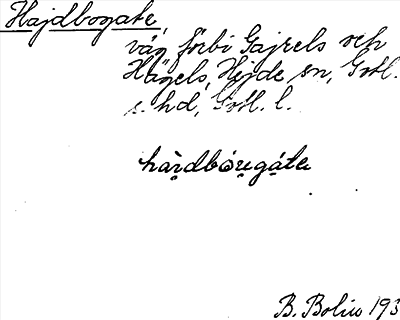 Hajdbogate,
väg förbi Gajrels och
Hägels, Hejde sn, Gotl.
s. hd, Gotl. l.
hàrdbóugáta
B. Bolin 193